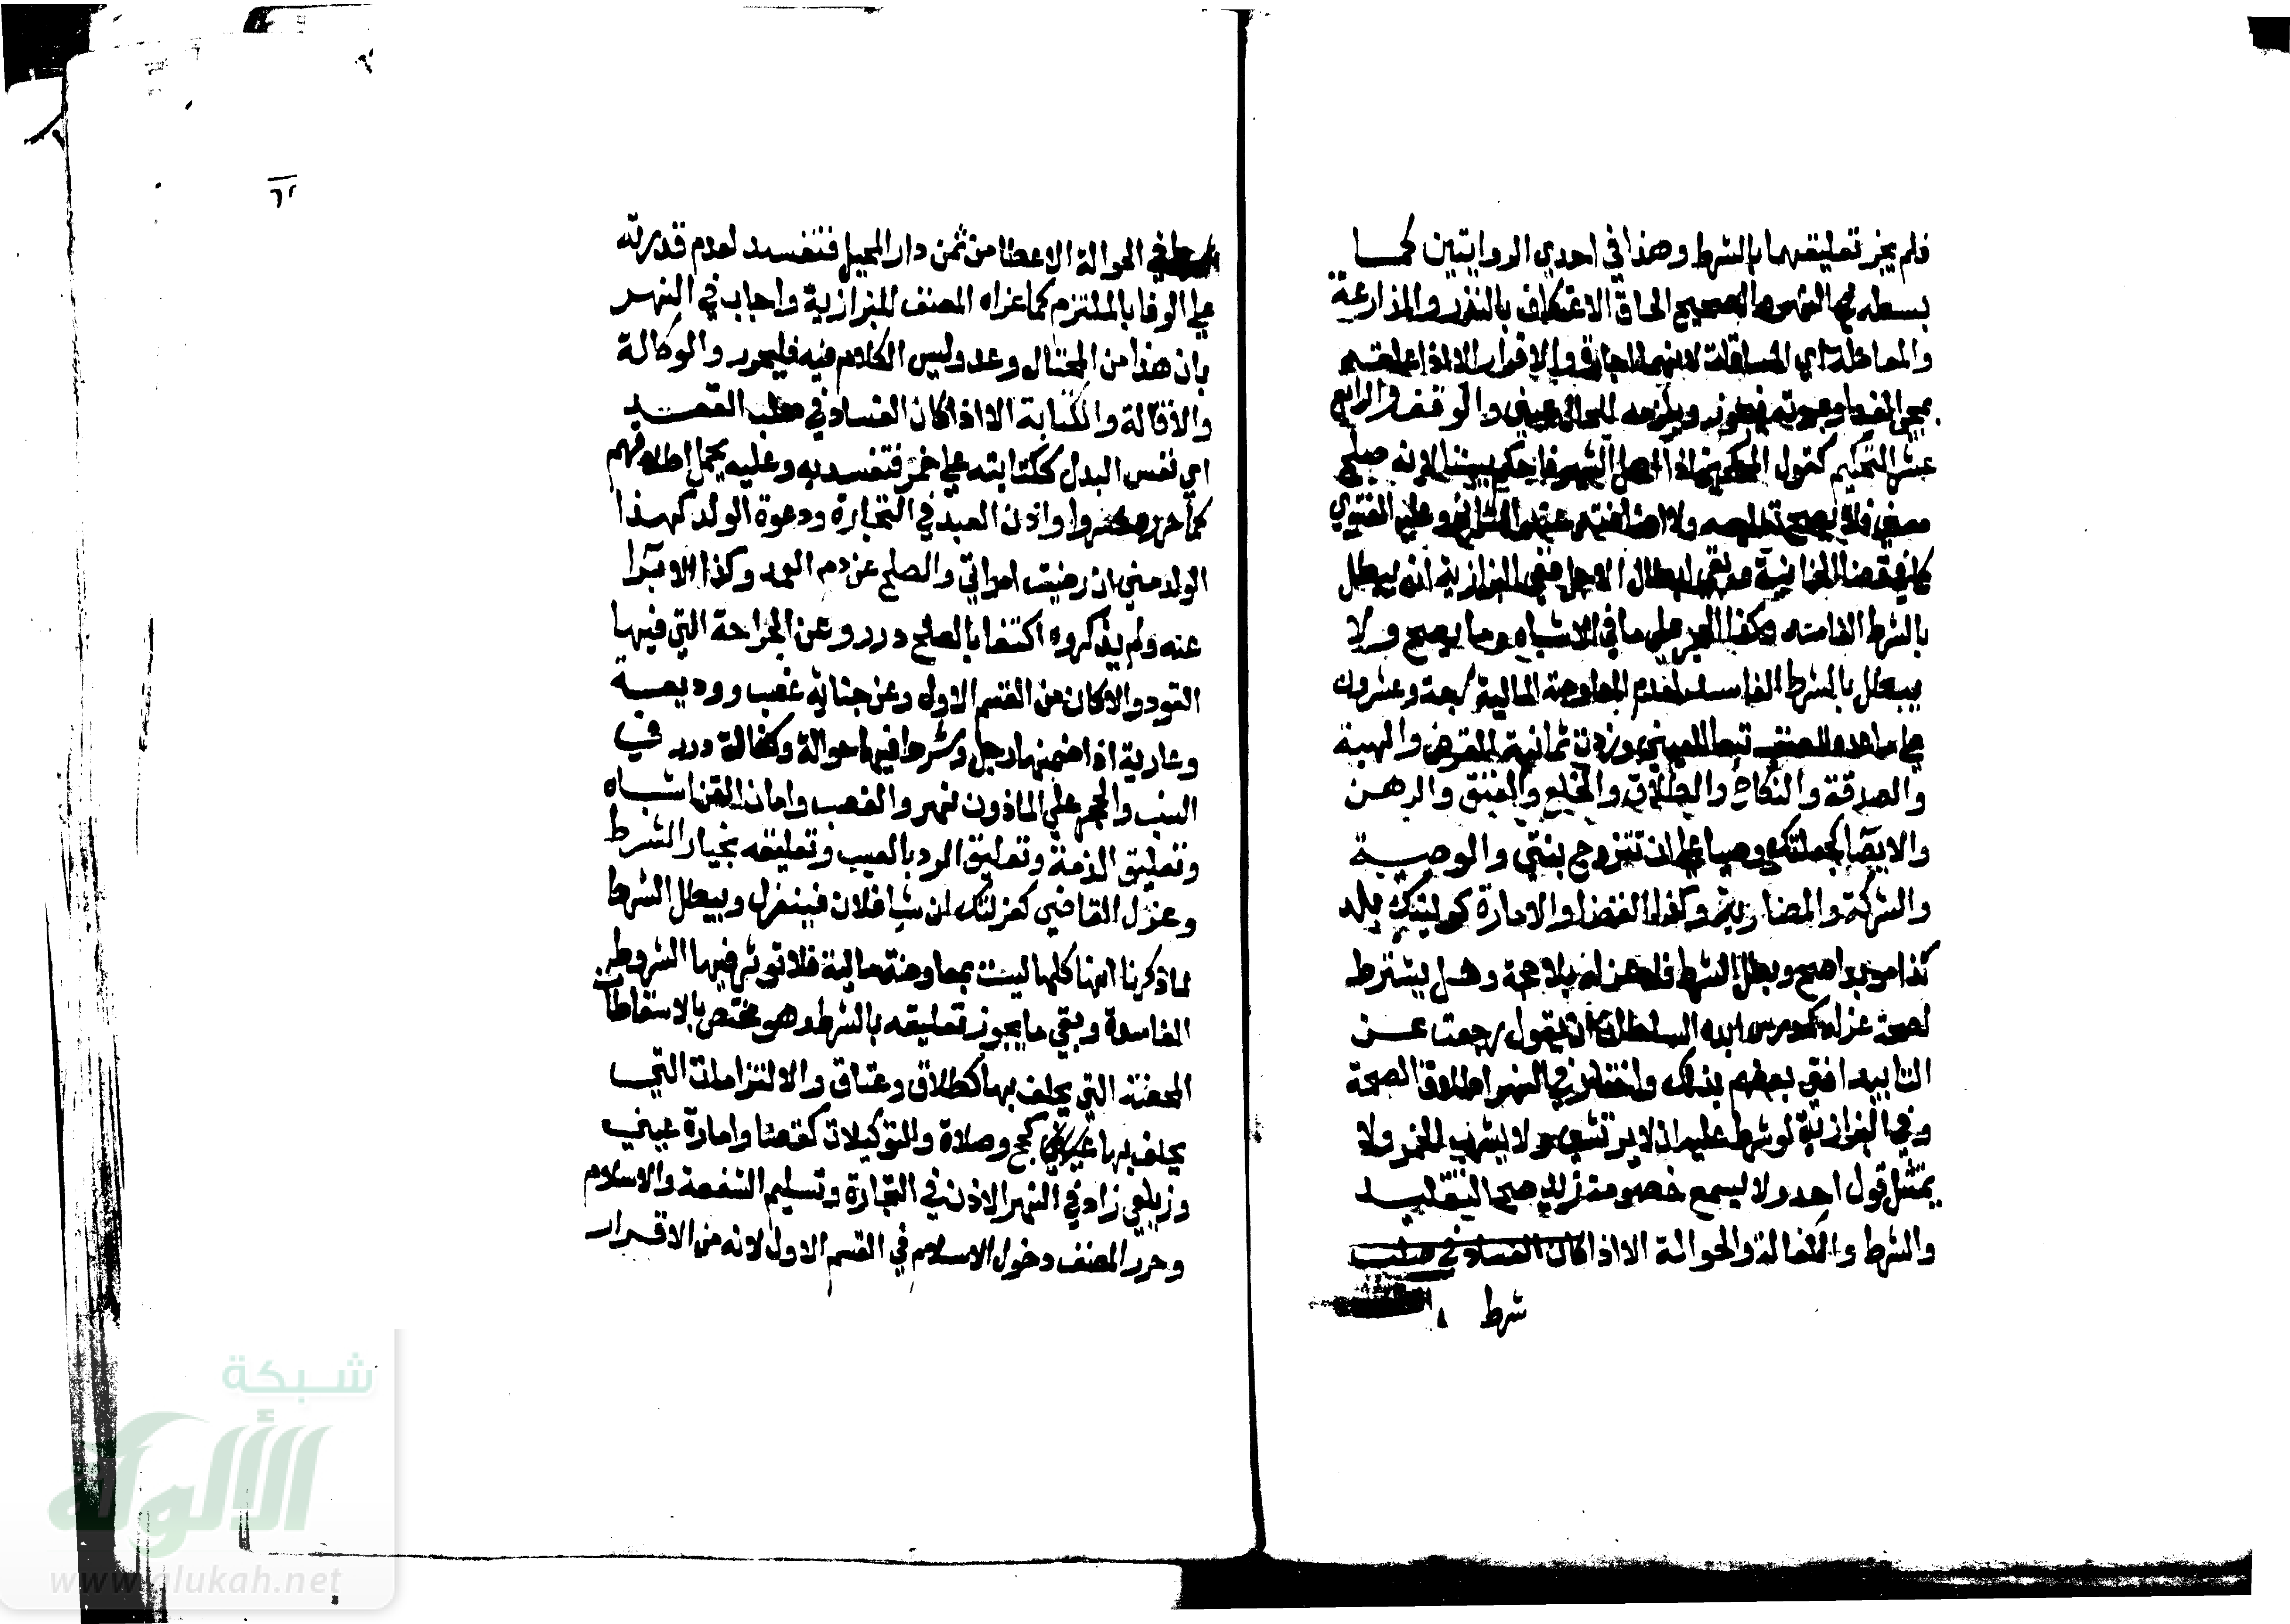 فلم يجز تعليقهما بالشرط وهذا في احدي الروايتين كما
بسطه في النهر والصحيح الحاق الاعتكاف بالنذر والمزارعة
والمعاملة اي المساقاة لانهما اجارة والاقرار الا اذا علقه
بمجي الغد او بموته فيجوز ويلزمه للحال عيني والوقف والرابع
عشر التحكيم كقول المحكمين اذا اهل الشهر فاحكم بيننا لانه صلح
معني فلا يصح تعليقه ولا اضافته عند الثاني وعليه الفتوي
كما في قضا الخانية وبقي ابطال الاجل ففي البزازية انه يبطل
بالشرط الفاسد وكذا الحجر علي ما في الاشباه وما يصح ولا
يبطل بالشرط الفاسد لعدم المعاوضة المالية سبعة وعشرون
علي ما عده المصنف تبعا للعيني وزدت ثمانية القرض والهبة
والصدقة والنكاح والطلاق والخلع والعتق والرهن
والايصا كجعلتك وصيا علي ان تتزوج بنتي والوصية
والشركة والمضاربة وكذا القضا والامارة كوليتك بلد
كذا موبدا صح وبطل الشرط فله عزله بلا جحة وهل يشترط
لصحة عزله كمدرس ابده السلطان ان يقول رجعت عن
التابيد افتي بعضهم بذلك واختار في النهر اطلاق الصحة
وفي البزازية لو شرط عليه ان لا يرتشي ولا يشرب الخمر ولا
يمتثل قول احد ولا يسمع خصومة زيد صح التقليد
والشرط والكفالة والحوالة الا اذا كان الفساد في صلب
شرط
في الحوالة الاعطا من ثمن دار المحيل فتفسد لعدم قدرته
علي الوفا بالملتزم كما عزاه المصنف للبزازية واجاب في النهر
بان هذا من المحتال وعد وليس الكلام فيه فليحرر والوكالة
والاقالة والكتابة الا اذا كان الفساد في صلب العقد
اي نفس البدل ككتابته علي خمر فتفسد به وعليه يحمل اطلاقهم
كما حرره خسروا واذن العبد في التجارة ودعوة الولد كهذا
الولد مني ان رضيت امراتي والصلح عن دم العمد وكذا الابرا
عنه ولم يذكروه اكتفا بالصلح درر وعن الجراحة التي فيها
القود والا كان من القسم الاول وعن جناية غصب ووديعة
وعارية اذا ضمنها رجل وشرط فيها حوالة وكفالة درر في
النسب والحجر علي الماذون نهر والغصب وامان القن اشباه
وتعليق الذمة وتعليق الرد بالعيب وتعليقه بخيار الشرط
وعزل القاضي كعزلتك ان شا فلان فينعزل ويبطل الشرط
لما ذكرنا انها كلها ليست بمعاوضة مالية فلا توثر فيها الشروط
الفاسدة وبقي ما يجوز تعليقه بالشرط وهو مختص بالاسقاطات
المحضة التي يحلف بها كطلاق وعتاق والالتزامات التي
يحلف بها كحج وصلاة والتوكيلات كقضا وامارة عيني
وزيلعي زاد في النهر الاذن في التجارة وتسليم الشفعة والاسلام
وحرر المصنف دخول الاسلام في القسم الاول لانه من الاقرار
شبكة
الألوكة
www.alukah.net